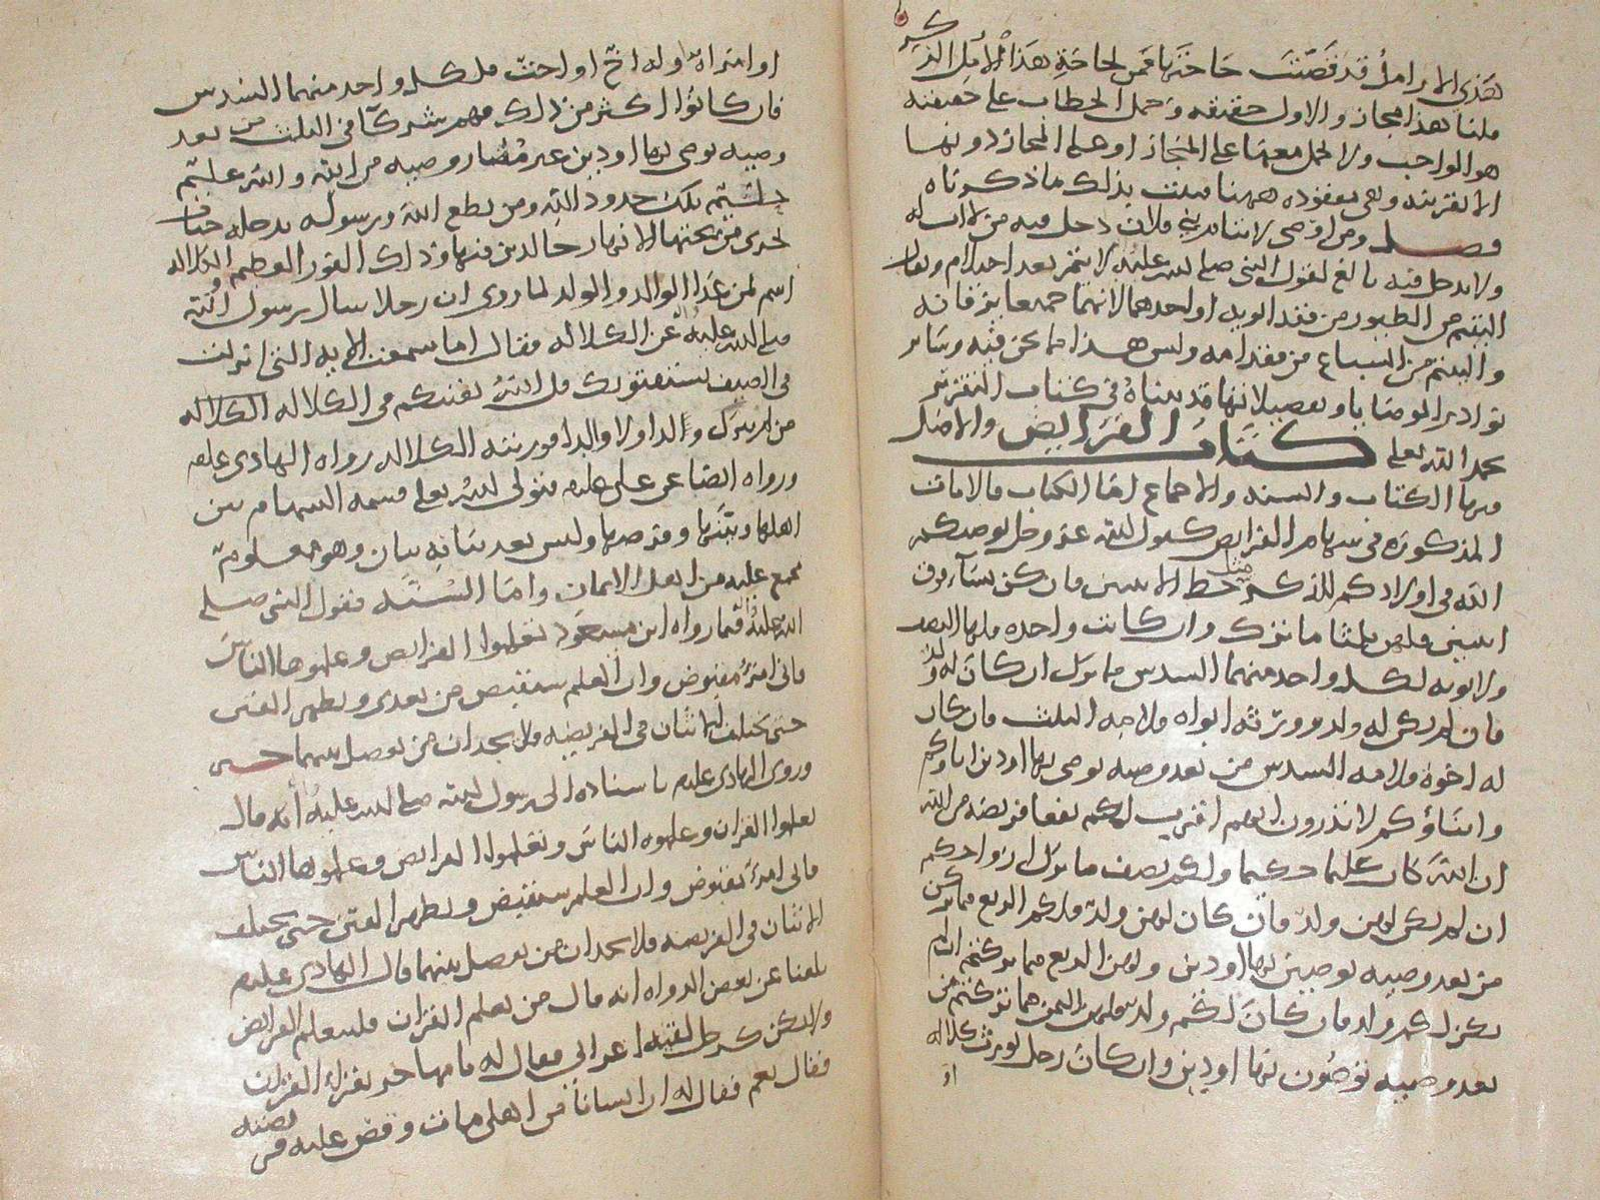 هذي الارامل قد قضيت حاجتها فمن لحاجة هذا الارمل الذكر
قلنا هذا مجاز والاول حقيقة وحمل الخطاب على حقيقته
هو الواجب ولا يحمل معها على المجاز او على المجاز دونها
الا لقرينة وهي مفقودة ههنا فثبت بذلك ما ذكرناه
فصل ومن اوصى لايتام بني فلان دخل فيه من لا اب له
ولا يدخل فيه بالغ لقول النبي صلى الله عليه لا يتم بعد احتلام ويقال
اليتيم من الطيور من فقد ابويه او احدهما لانهما جميعا يزقانه
واليتيم من السباع من فقد امه وليس هذا مما نحن فيه وسائر
نوادر الوصايا وتفصيلاتها قد بيناه في كتاب التقرير
بحمد الله تعالى كتاب الفرايض والاصل
فيها الكتاب والسنة والاجماع اما الكتاب فالايات
المذكورة في سهام الفرايض كقول الله عز وجل يوصيكم
الله في اولادكم للذكر مثل حظ الانثيين فان كن نساء فوق
اثنتين فلهن ثلثا ما ترك وان كانت واحدة فلها النصف
ولابويه لكل واحد منهما السدس مما ترك ان كان له ولد
فان لم يكن له ولد وورثه ابواه فلامه الثلث فان كان
له اخوة فلامه السدس من بعد وصية يوصى بها او دين اباؤكم
وابناؤكم لا تدرون ايهم اقرب لكم نفعا فريضة من الله
ان الله كان عليما حكيما ولكم نصف ما ترك ازواجكم
ان لم يكن لهن ولد فان كان لهن ولد فلكم الربع مما تركن
من بعد وصية يوصين بها او دين ولهن الربع مما تركتم ان لم
يكن لكم ولد فان كان لكم ولد فلهن الثمن مما تركتم من
بعد وصية توصون بها او دين وان كان رجل يورث كلالة
او
او امراة وله اخ او اخت فلكل واحد منهما السدس
فان كانوا اكثر من ذلك فهم شركا في الثلث من بعد
وصية يوصى بها او دين غير مضار وصية من الله والله عليم
حليم تلك حدود الله ومن يطع الله ورسوله يدخله جنات
تجري من تحتها الانهار خالدين فيها وذلك الفوز العظيم والكلالة
اسم لمن عدا الوالد والولد لما روي ان رجلا سال رسول الله
صلى الله عليه عن الكلالة فقال اما سمعت الاية التي انزلت
في الصيف يستفتونك قل الله يفتيكم في الكلالة الكلالة
من لم يترك ولدا ولا والدا فورثته الكلالة رواه الهادي عليه
ورواه ايضا عن علي عليه فتولى الله تعالى قسمة السهام بين
اهلها وبينها وفرضها وليس بعد بيانه بيان وهو معلوم
مجمع عليه من اهل الايمان واما السنة فقول النبي صلى
الله عليه فيما رواه ابن مسعود تعلموا الفرايض وعلموها الناس
فاني امرؤ مقبوض وان العلم سيقبض من بعدي وتظهر الفتن
حتى يختلف اثنان في الفريضة فلا يجدان من يفصل بينهما خبر
وروى الهادي عليه باسناده الى رسول الله صلى الله عليه انه قال
تعلموا القران وعلموه الناس وتعلموا الفرايض وعلموها الناس
فاني امرؤ مقبوض وان العلم سيقبض وتظهر الفتن حتى يختلف
الاثنان في الفريضة فلا يجدان من يفصل بينهما قال الهادي عليه
بلغنا عن بعض الرواه انه قال من تعلم القران فليتعلم الفرايض
ولا يكن كرجل لقيه اعرابي فقال له يا مهاجر تقرا القران
فقال نعم فقال له ان انسانا من اهلي مات وقص عليه في